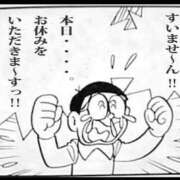 すいませ～ん!!
本日・・・・。
お休みを
いただきま～すっ!!